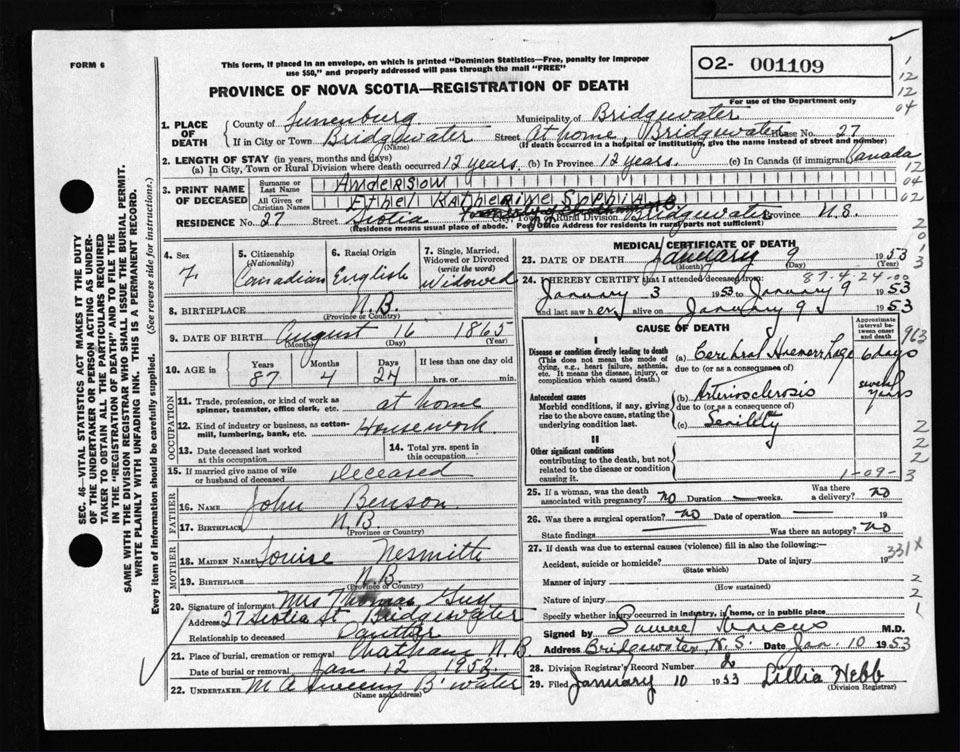 FORM 6
This form, if placed in an envelope, on which is printed "Dominion Statistics—Free, penalty for improper
use $50," and properly addressed will pass through the mail "FREE"
O2- 001109
For use of the Department only
PROVINCE OF NOVA SCOTIA—REGISTRATION OF DEATH
1. PLACE OF DEATH
County of Lunenburg Municipality of Bridgewater
If in City or Town Bridgewater Street At home, Bridgewater House No. 27
(Name) (If death occurred in a hospital or institution, give the name instead of street and number)
2. LENGTH OF STAY (in years, months and days)
(a) In City, Town or Rural Division where death occurred 12 years. (b) In Province 12 years. (c) In Canada (if immigrant) Canada
3. PRINT NAME OF DECEASED
Surname or Last Name Anderson
All Given or Christian Names Ethel Katherine Sophia
RESIDENCE No. 27 Street Scotia City, Town or Rural Division Bridgewater Province N.S.
(Residence means usual place of abode. Post Office Address for residents in rural parts not sufficient)
4. Sex
F.
5. Citizenship (Nationality)
Canadian
6. Racial Origin
English
7. Single, Married, Widowed or Divorced (write the word)
Widowed
8. BIRTHPLACE N.B.
(Province or Country)
9. DATE OF BIRTH August 16 1865
(Month) (Day) (Year)
10. AGE in
Years Months Days If less than one day old
87 4 24 hrs. or min.
OCCUPATION
11. Trade, profession, or kind of work as spinner, teamster, office clerk, etc. at home
12. Kind of industry or business, as cotton-mill, lumbering, bank, etc. Housework
13. Date deceased last worked at this occupation
14. Total yrs. spent in this occupation
15. If married give name of wife or husband of deceased deceased
FATHER
16. NAME John Benson
17. BIRTHPLACE N.B.
(Province or Country)
MOTHER
18. MAIDEN NAME Louise Nesmith
19. BIRTHPLACE N.B.
(Province or Country)
20. Signature of informant Mrs Thomas Guy
Address 27 Scotia St Bridgewater
Relationship to deceased
21. Place of burial, cremation or removal Chatham N.B.
Date of burial or removal Jan 12 1953
22. UNDERTAKER M A Sweeny B'water
(Name and address)
MEDICAL CERTIFICATE OF DEATH
23. DATE OF DEATH January 9 1953
(Month) (Day) (Year)
87-4-24-00
24. I HEREBY CERTIFY that I attended deceased from:
January 3 1953 to January 9 1953
and last saw her alive on January 9 1953
CAUSE OF DEATH
Approximate interval between onset and death
I
Disease or condition directly leading to death
(This does not mean the mode of dying, e.g., heart failure, asthenia, etc. It means the disease, injury, or complication which caused death.)
(a) Cerebral Haemorrhage 6 days
due to (or as a consequence of)
Antecedent causes
Morbid conditions, if any, giving rise to the above cause, stating the underlying condition last.
(b) Arteriosclerosis several years
due to (or as a consequence of)
(c) Senility
II
Other significant conditions
contributing to the death, but not related to the disease or condition causing it.
1-09-3
25. If a woman, was the death associated with pregnancy? no Duration weeks. Was there a delivery? no
26. Was there a surgical operation? no Date of operation 19
State findings Was there an autopsy? no
27. If death was due to external causes (violence) fill in also the following:—
Accident, suicide or homicide? Date of injury 19
(State which)
331X
Manner of injury
(How sustained)
Nature of injury
Specify whether injury occurred in industry, in home, or in public place
Signed by Samuel Marcus M.D.
Address Bridgewater N.S. Date Jan. 10 1953
28. Division Registrar's Record Number 2
29. Filed January 10 1953 Lillia Hebb
(Division Registrar)
SEC. 46—VITAL STATISTICS ACT MAKES IT THE DUTY
OF THE UNDERTAKER OR PERSON ACTING AS UNDER-
TAKER TO OBTAIN ALL THE PARTICULARS REQUIRED
IN THE "REGISTRATION OF DEATH" AND TO FILE THE
SAME WITH THE DIVISION REGISTRAR WHO SHALL ISSUE THE BURIAL PERMIT.
WRITE PLAINLY WITH UNFADING INK. THIS IS A PERMANENT RECORD.
Every item of information should be carefully supplied. (See reverse side for instructions.)
1
12
12
04
12
04
02
2
0
1
3
963
2
2
2
3
2
2
1